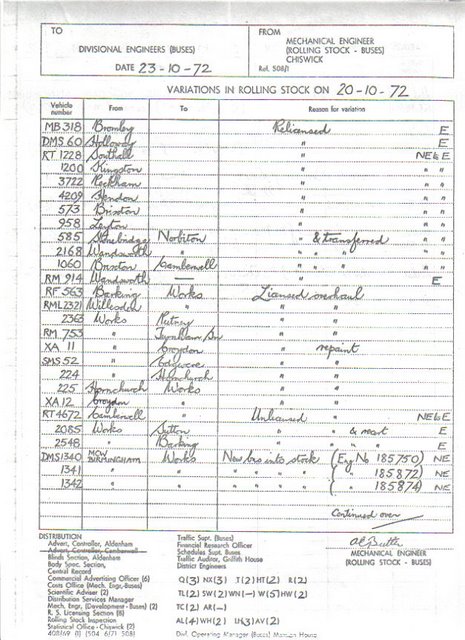 TO
DIVISIONAL ENGINEERS (BUSES)
DATE 23-10-72
FROM
MECHANICAL ENGINEER
(ROLLING STOCK - BUSES)
CHISWICK
Ref. 508/1
VARIATIONS IN ROLLING STOCK ON 20-10-72
Vehicle number From To Reason for variation
MB318 Bromley Relicensed E
DMS 60 Holloway " E
RT 1228 Southall " NE to E
1200 Kingston " " "
3722 Peckham " " "
4209 Hendon " " "
573 Brixton " " "
958 Leyton " " "
585 Stonebridge Norbiton " & transferred " "
2168 Wandsworth " " " " " "
1060 Brixton Camberwell " " " " "
RM 914 Wandsworth — " E
RF 563 Barking Works Licensed overhaul
RML 2321 Willesden " " "
2363 Works Putney " "
RM 753 " Turnham Gn " "
XA 11 " Croydon " repaint
SMS 52 " Edgware " "
224 " Hornchurch " "
225 Hornchurch Works " "
XA 12 Croydon " " "
RT 4672 Camberwell " Unlicensed " NE to E
2085 Works Sutton " & E
2548 " Barking " " E
DMS1340 MCW BIRMINGHAM Works New bus into stock (Eng No 185750) NE
1341 " " " " " " ( 185872) NE
1342 " " " " " " ( " 185874) NE
Continued over
DISTRIBUTION
Advert. Controller, Aldenham
Advert. Controller, Camberwell
Blinds Section, Aldenham
Body Spec. Section,
Central Record
Commercial Advertising Officer (6)
Costs Office (Mech. Engr.-Buses)
Scientific Adviser (2)
Distribution Services Manager
Mech. Engr. (Development - Buses) (2)
R. S. Licensing Section (8)
Rolling Stock Inspection
Statistical Office - Chiswick (2)
408/69 (I) (504 6/7) 508)
Traffic Supt. (Buses)
Financial Research Officer
Schedules Supt. Buses
Traffic Auditor, Griffith House
District Engineers
Q(3) NX(3) T(2) HT(2) R(2)
TL(2) SW(2) WN(-) W(5) HW(2)
TC(2) AR(-)
AL(4) WH(2) LH(3) AV(2)
Div. Operating Manager (Buses) Manson House
MECHANICAL ENGINEER
(ROLLING STOCK - BUSES)